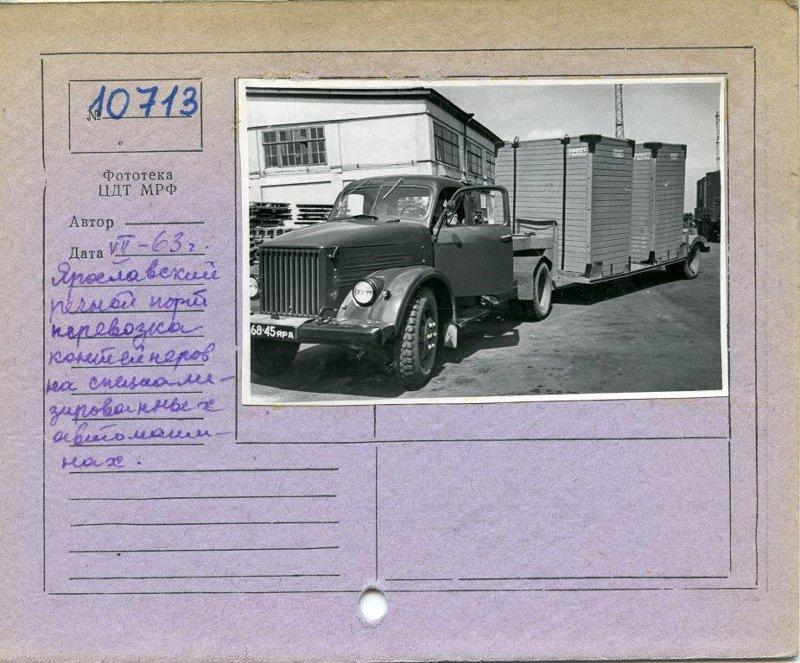 № 10713
Фототека
ЦДТ МРФ
Автор
Дата VII-63г.
Ярославский
речной порт
перевозка
контейнеров
на специали-
зированных
автомаши-
нах.
68-45 ЯРА